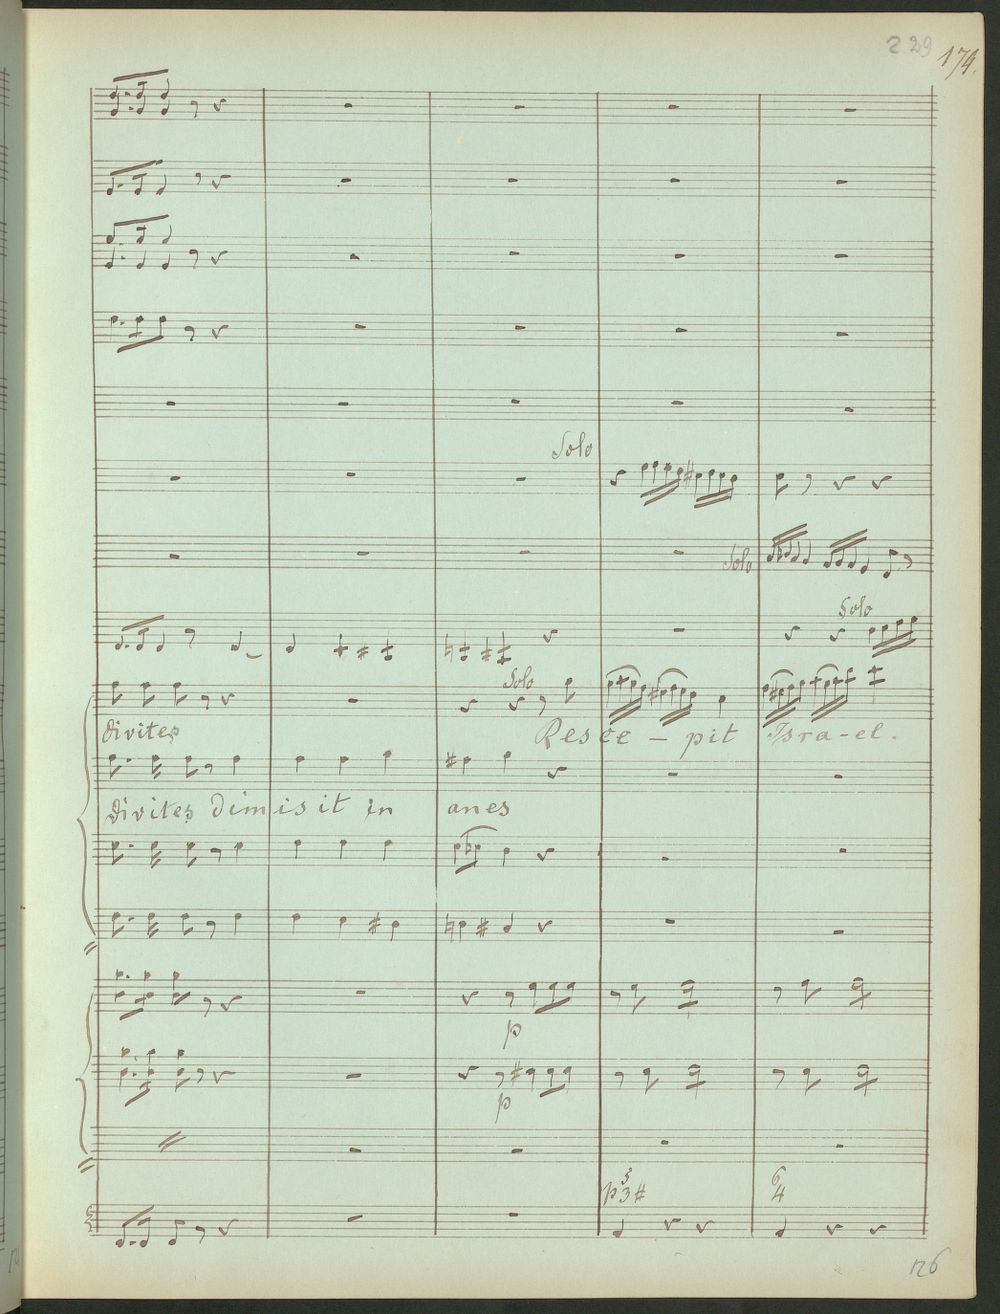 229 174.
Solo
Solo
Solo
Solo
divites Resce - pit Isra-el.
divites dimisit in anes
p
p
p 5 3 # 6 4
126